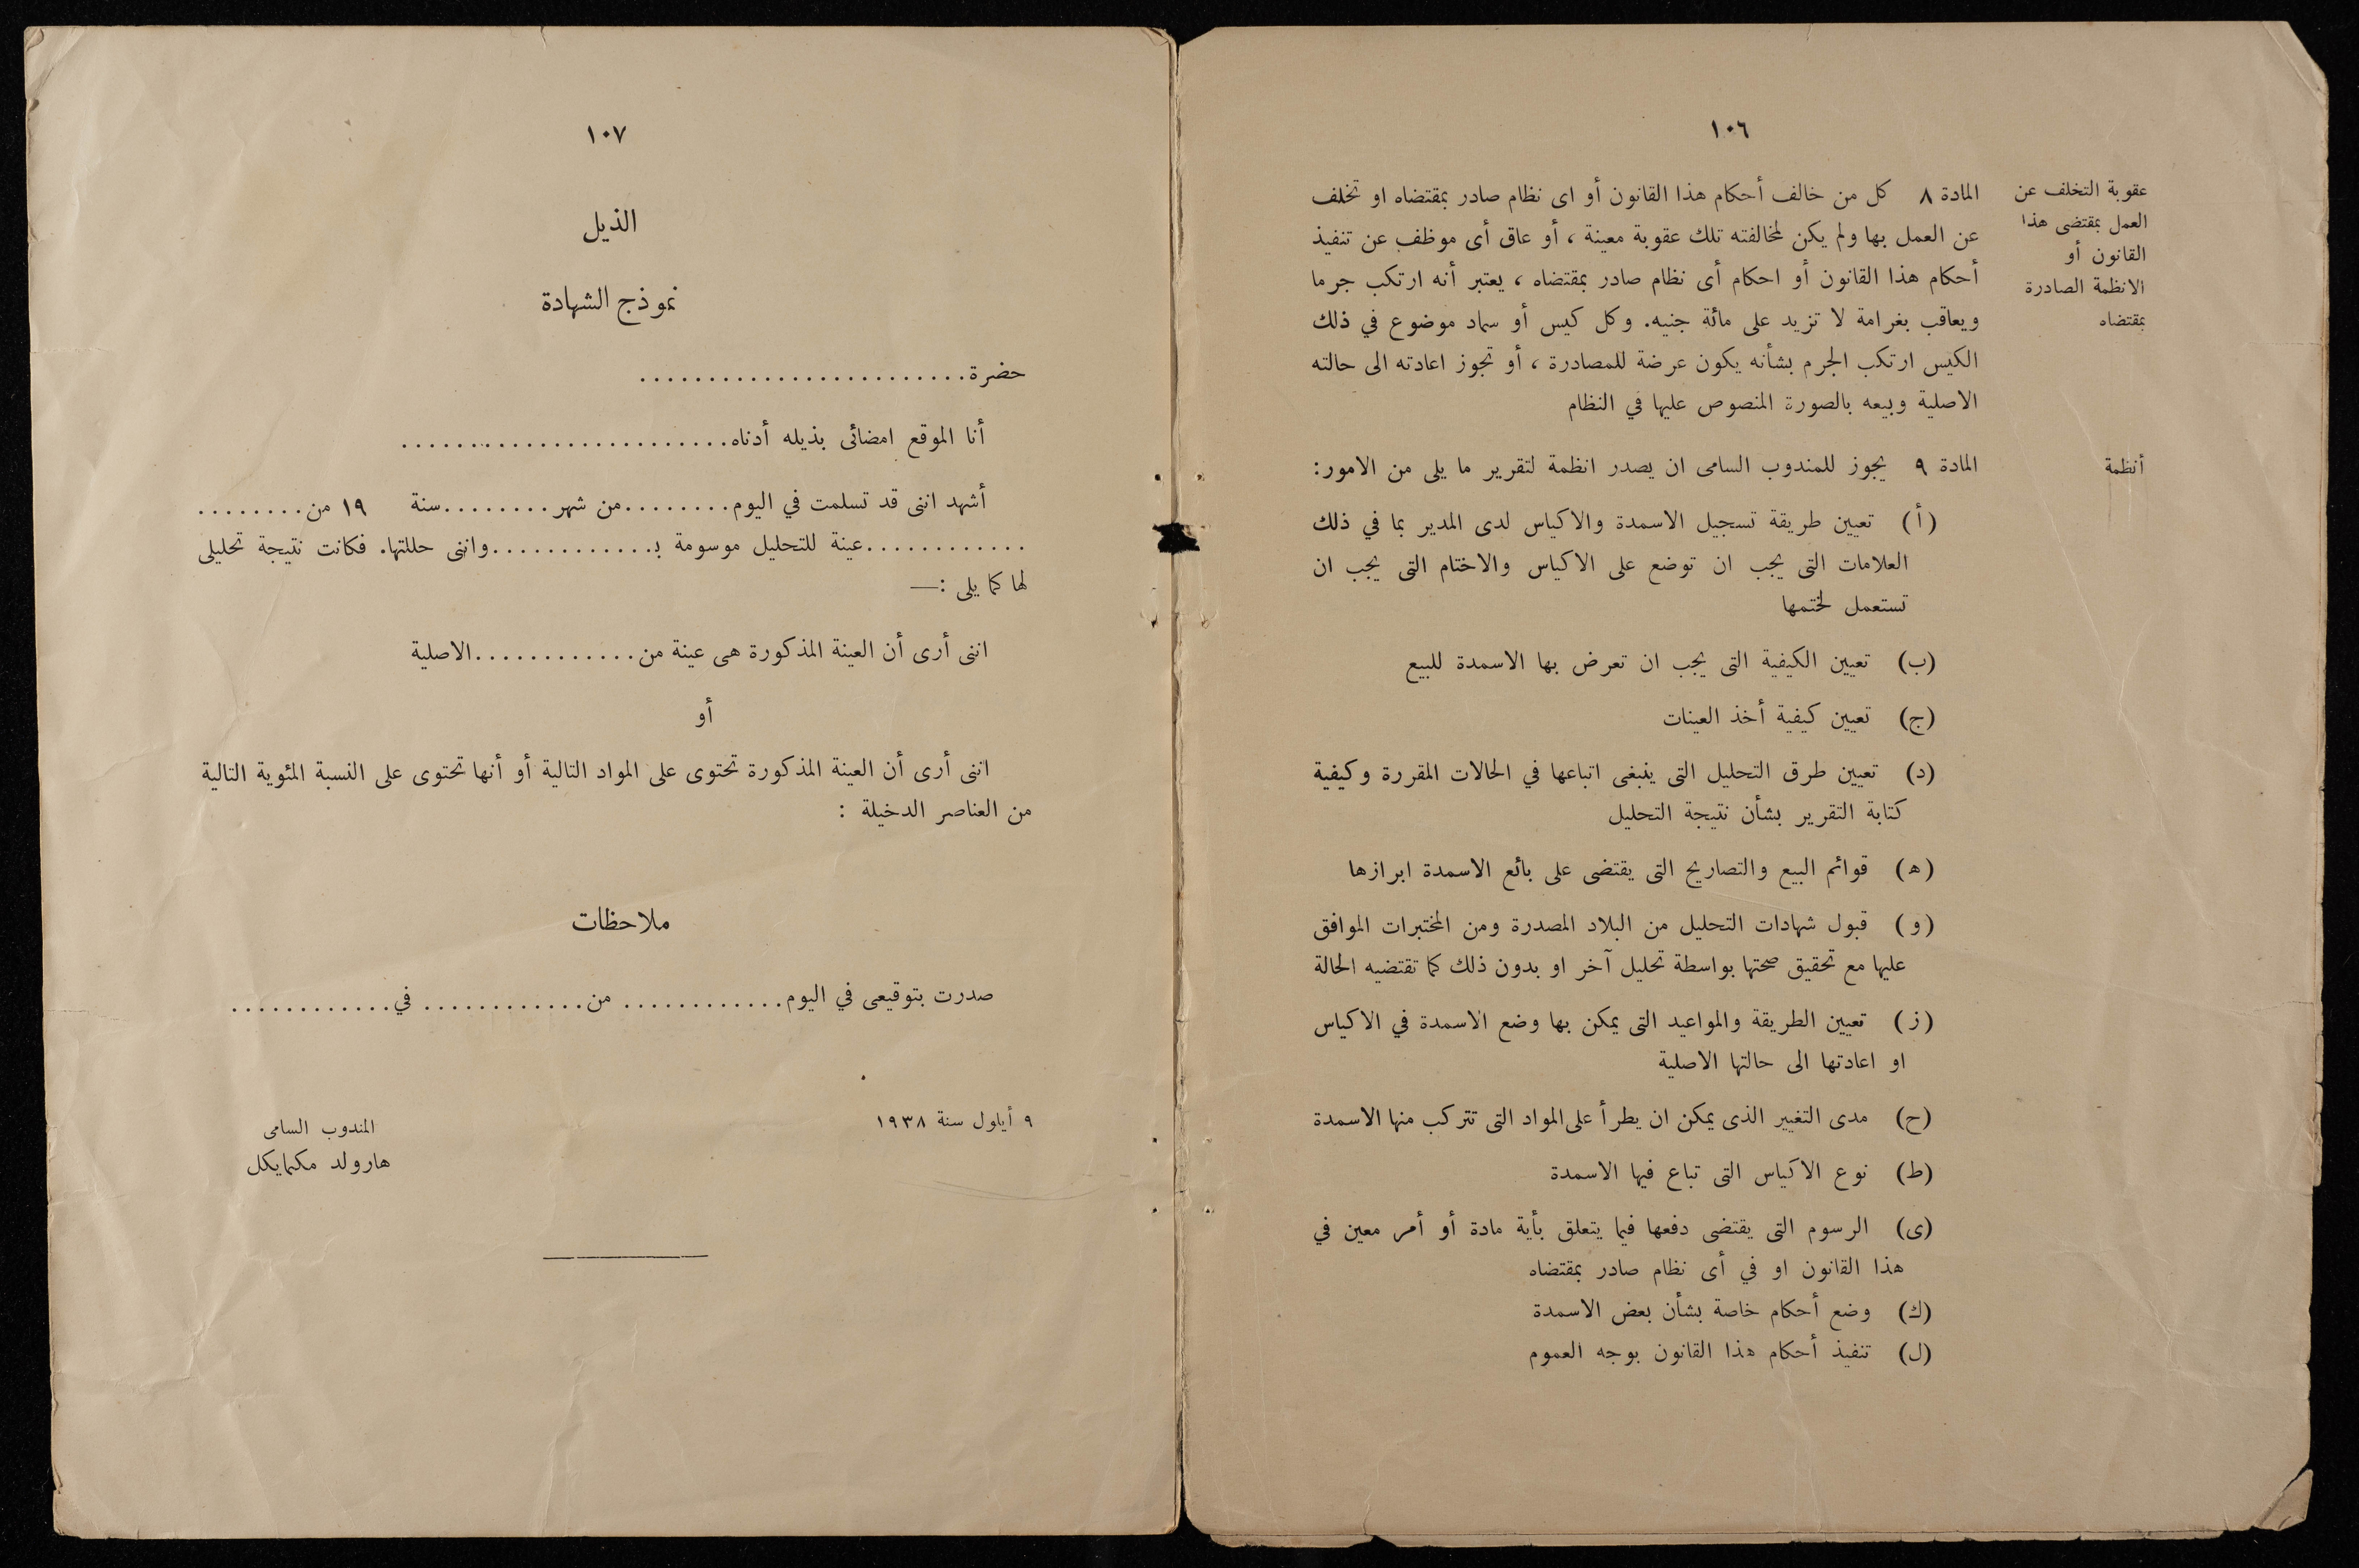 ١٠٦
عقوبة التخلف عن
العمل بمقتضى هذا
القانون أو
الانظمة الصادرة
بمقتضاه
المادة ٨ كل من خالف أحكام هذا القانون أو اى نظام صادر بمقتضاه او تخلف
عن العمل بها ولم يكن لمخالفته تلك عقوبة معينة ، أو عاق أى موظف عن تنفيذ
أحكام هذا القانون أو احكام أى نظام صادر بمقتضاه ، يعتبر أنه ارتكب جرما
ويعاقب بغرامة لا تزيد على مائة جنيه. وكل كيس أو سماد موضوع في ذلك
الكيس ارتكب الجرم بشأنه يكون عرضة للمصادرة ، أو تجوز اعادته الى حالته
الاصلية وبيعه بالصورة المنصوص عليها في النظام
أنظمة
المادة ٩ يجوز للمندوب السامى ان يصدر انظمة لتقرير ما يلى من الامور:
(أ) تعيين طريقة تسجيل الاسمدة والاكياس لدى المدير بما في ذلك
العلامات التى يجب ان توضع على الاكياس والاختام التى يجب ان
تستعمل لختمها
(ب) تعيين الكيفية التى يجب ان تعرض بها الاسمدة للبيع
(ج) تعيين كيفية أخذ العينات
(د) تعيين طرق التحليل التى ينبغى اتباعها في الحالات المقررة وكيفية
كتابة التقرير بشأن نتيجة التحليل
(ه) قوائم البيع والتصاريح التى يقتضى على بائع الاسمدة ابرازها
(و) قبول شهادات التحليل من البلاد المصدرة ومن المختبرات الموافق
عليها مع تحقيق صحتها بواسطة تحليل آخر او بدون ذلك كما تقتضيه الحالة
(ز) تعيين الطريقة والمواعيد التى يمكن بها وضع الاسمدة في الاكياس
او اعادتها الى حالتها الاصلية
(ح) مدى التغيير الذى يمكن ان يطرأ على المواد التى تتركب منها الاسمدة
(ط) نوع الاكياس التى تباع فيها الاسمدة
(ى) الرسوم التى يقتضى دفعها فيما يتعلق بأية مادة أو أمر معين في
هذا القانون او في أى نظام صادر بمقتضاه
(ك) وضع أحكام خاصة بشأن بعض الاسمدة
(ل) تنفيذ أحكام هذا القانون بوجه العموم
١٠٧
الذيل
نموذج الشهادة
حضرة........................
أنا الموقع امضائى بذيله أدناه........................
أشهد اننى قد تسلمت في اليوم........من شهر........سنة ١٩ من........
............عينة للتحليل موسومة بـ............واننى حللتها. فكانت نتيجة تحليلى
لها كما يلى :—
اننى أرى أن العينة المذكورة هى عينة من............الاصلية
أو
اننى أرى أن العينة المذكورة تحتوى على المواد التالية أو أنها تحتوى على النسبة المئوية التالية
من العناصر الدخيلة :
ملاحظات
صدرت بتوقيعى في اليوم............ من............ في............
٩ أيلول سنة ١٩٣٨
المندوب السامى
هارولد مكمايكل